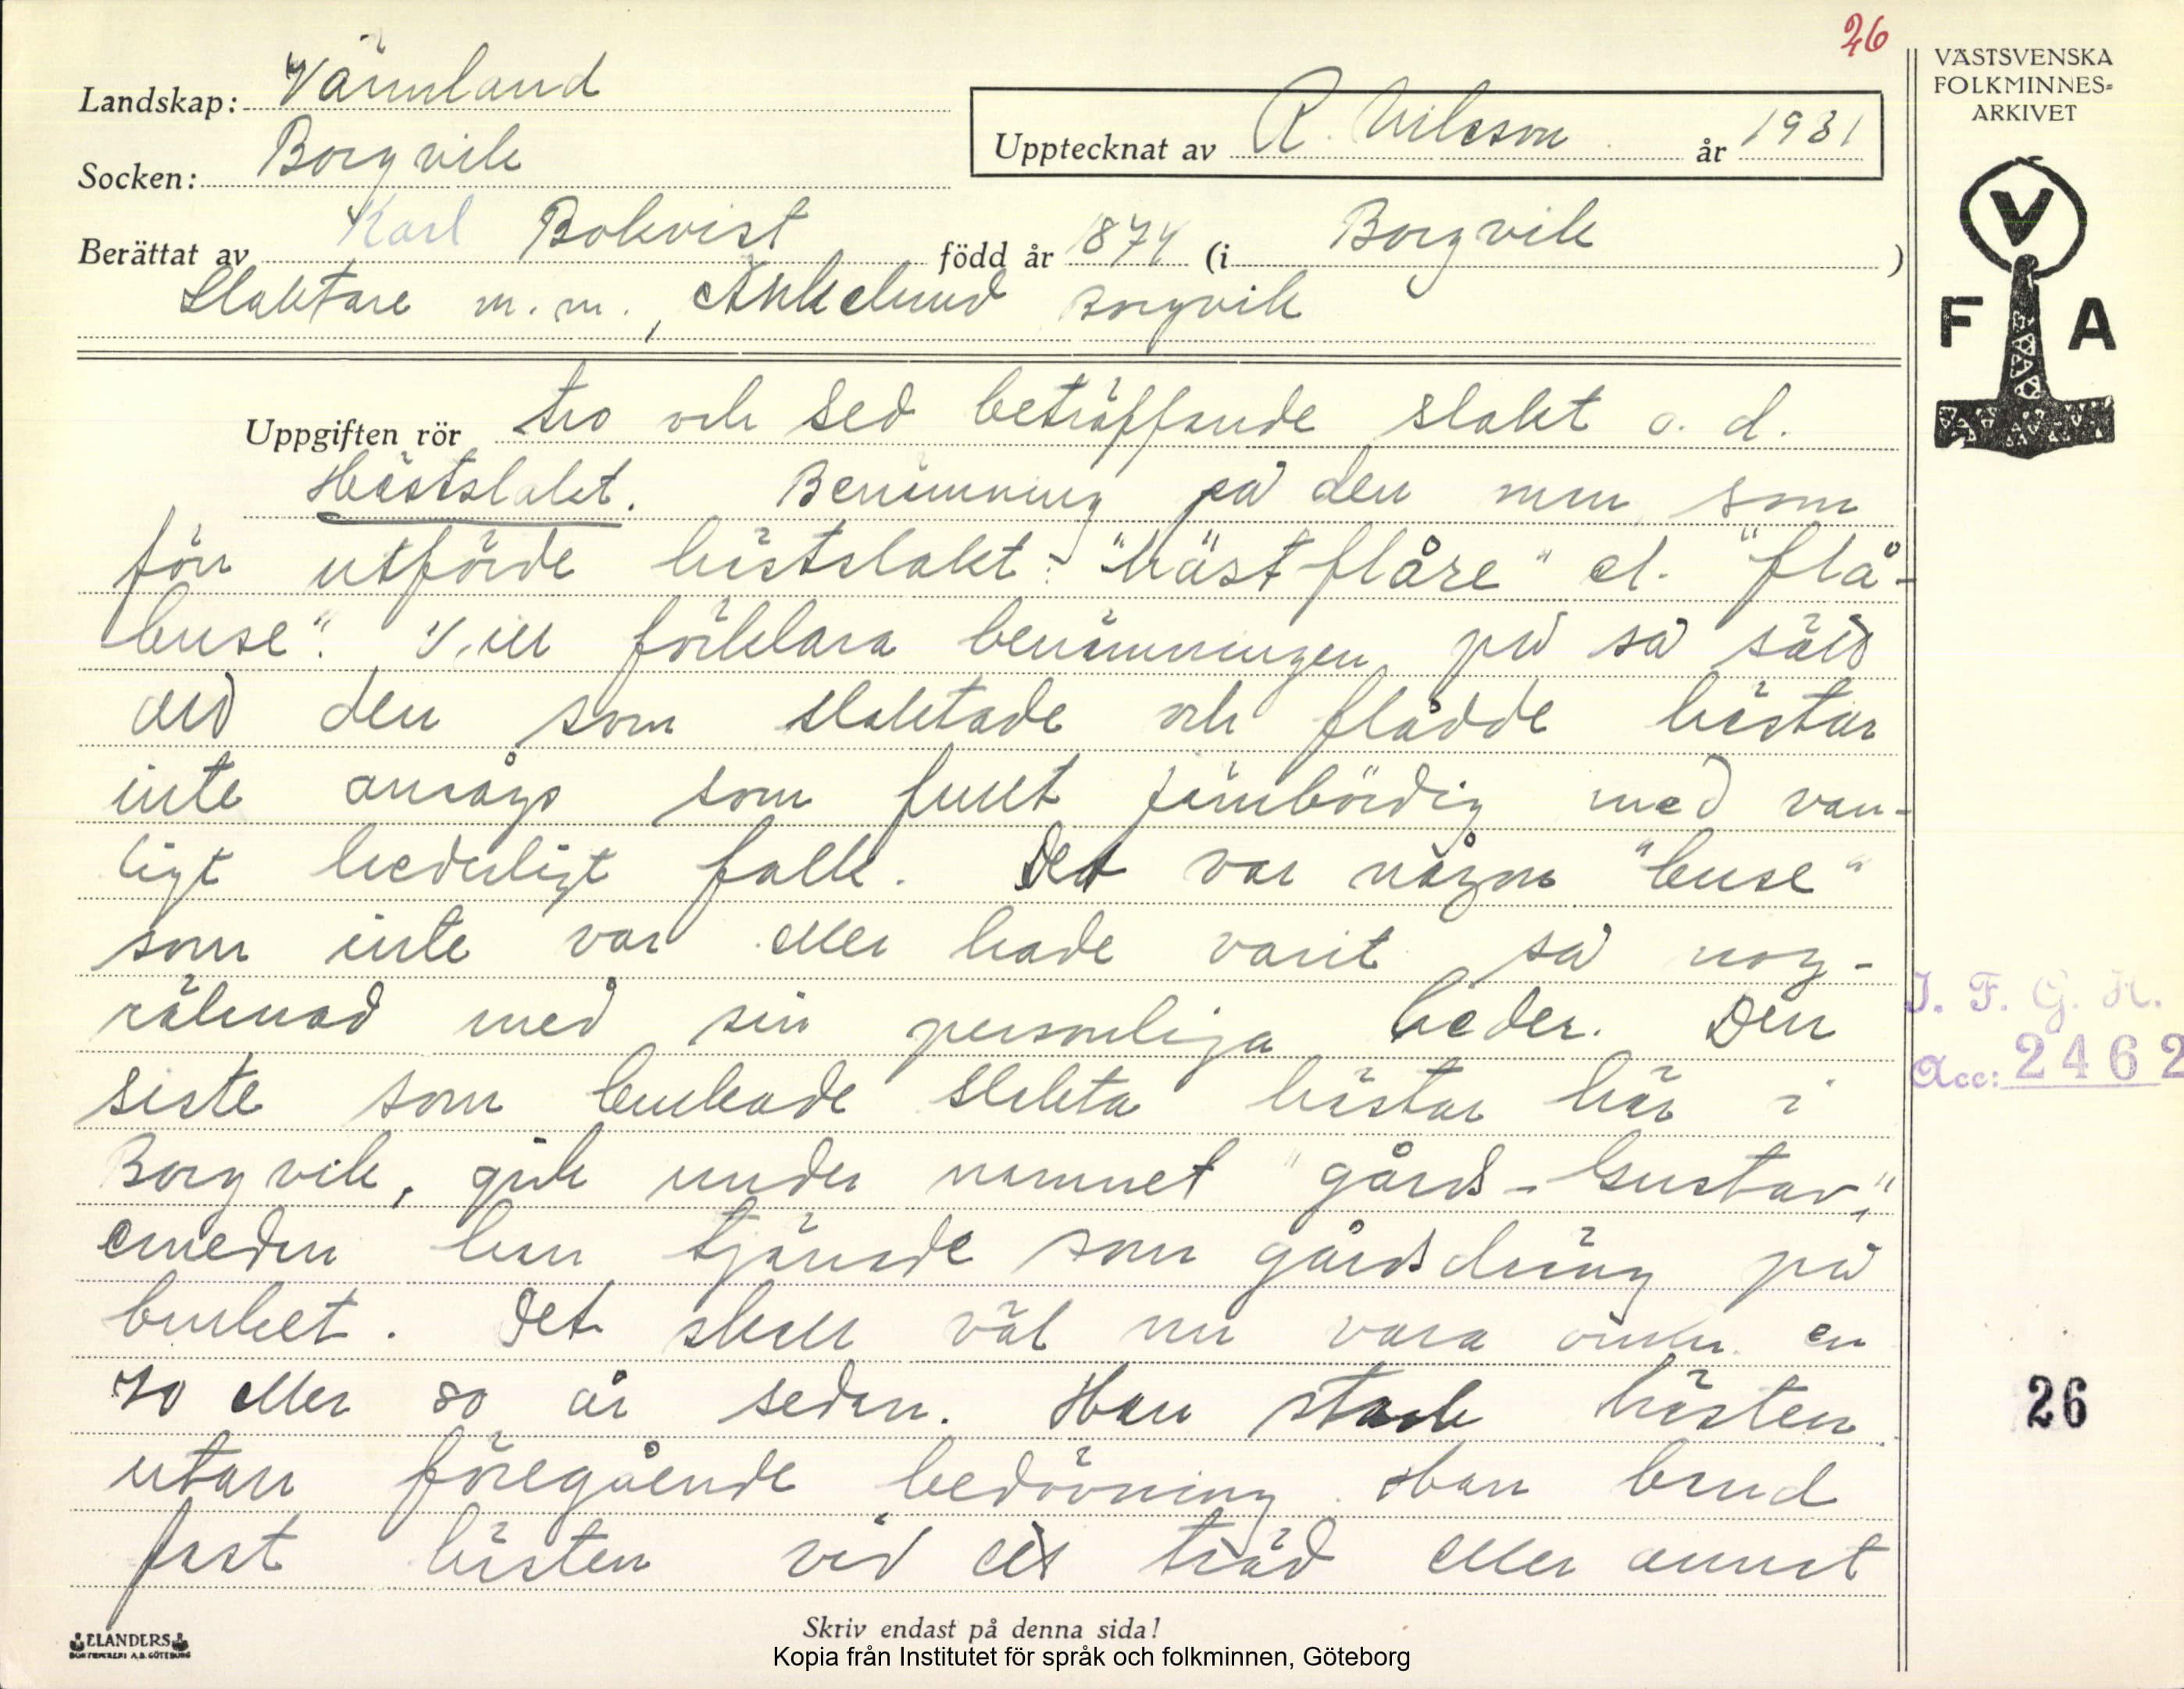 26
Landskap: Värmland
Socken: Borgvik
Upptecknat av R. Nilsson år 1931
Berättat av Karl Bokvist född år 1874 (i Borgvik)
Slaktare m.m., Borgvik
Uppgiften rör tro och sed beträffande slakt o. d.
Hästslakt. Benämning på den man som
förr utförde hästslakt: "hästflåre" el. "flå-
buse". Vill förklara benämningen på så sätt
att den som slaktade och flådde hästar
inte ansågs som fullt jämbördig med van-
ligt hederligt folk. Det var någon "buse"
som inte var eller hade varit så nog-
räknad med sin personliga heder. Den
siste som brukade slakta hästar här i
Borgvik, gick under namnet "gårds-Gustav",
emedan han tjänade som gårdsdräng på
bruket. Det skall väl nu vara omkr. en
70 eller 80 år sedan. Han stack hästen
utan föregående bedövning. Han band
fast hästen vid ett träd eller annat
Skriv endast på denna sida!
ELANDERS
BOKTRYCKERI A.B. GÖTEBORG
VÄSTSVENSKA
FOLKMINNES-
ARKIVET
V
F A
I. F. G. H.
Acc: 2462
26
Kopia från Institutet för språk och folkminnen, Göteborg